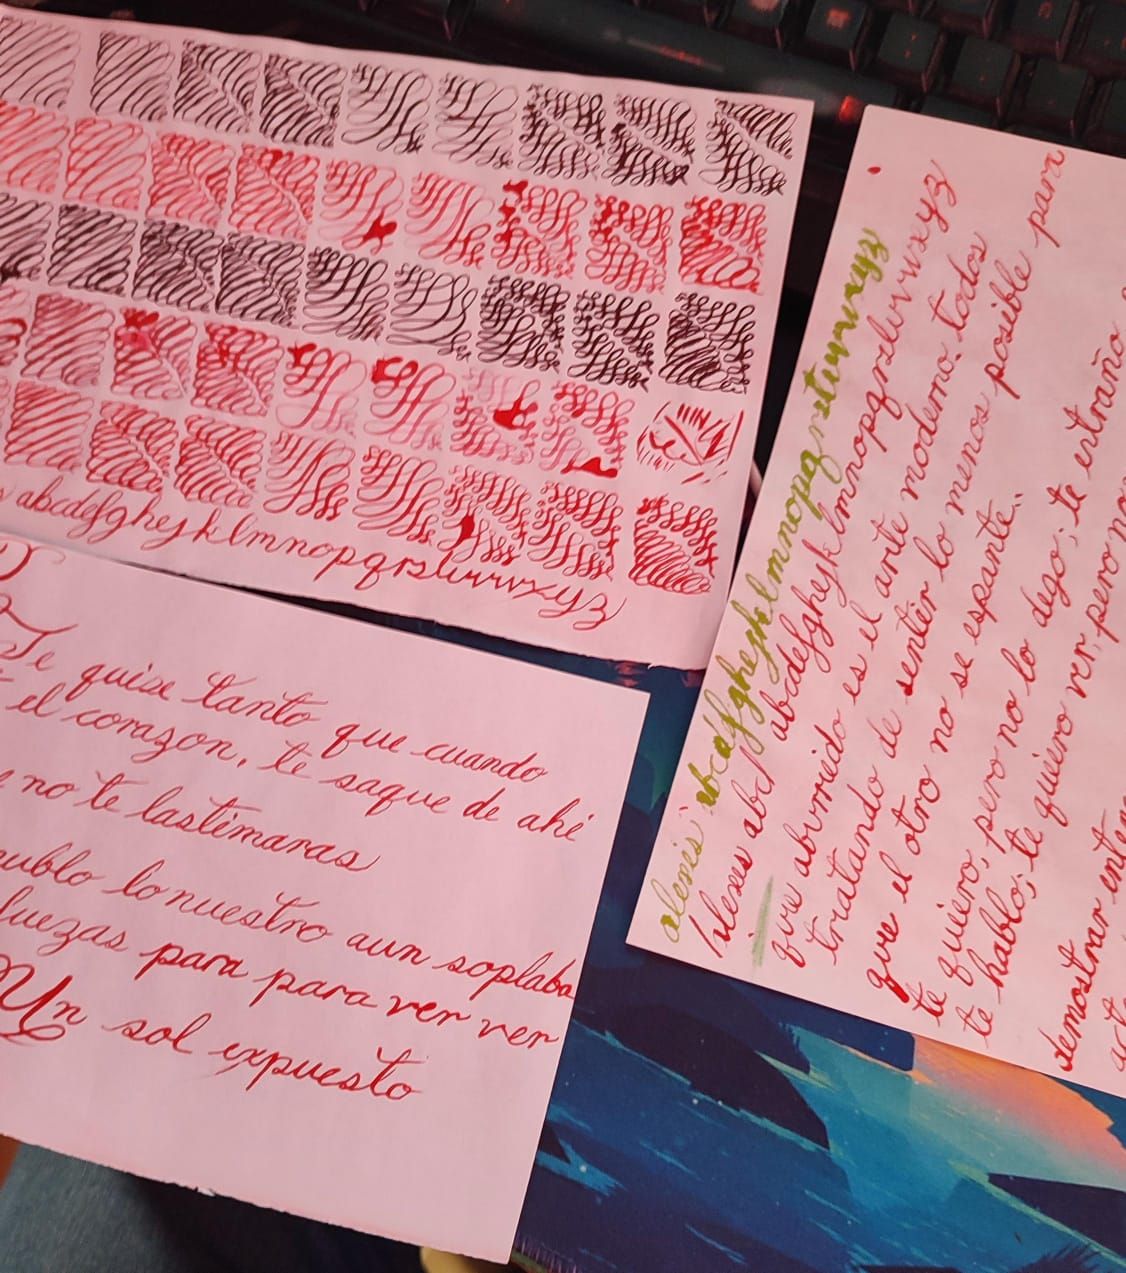 abcdefghijklmnopqrstuvwxyz
Te quise tanto que cuando
el corazon, te saque de ahi
no te lastimaras
lo nuestro aun soplaba
para para ver ver
Un sol expuesto
alexis abcdefghijklmnopqrstuvwxyz
Alexis abcd abcdefghijklmnopqrstuvwxyz
que aburrido es el arte moderno. todos
tratando de sentir lo menos posible para
que el otro no se espante.
te quiero, pero no lo dego; te estraño
te hablo; te quiero ver, pero no
demostrar